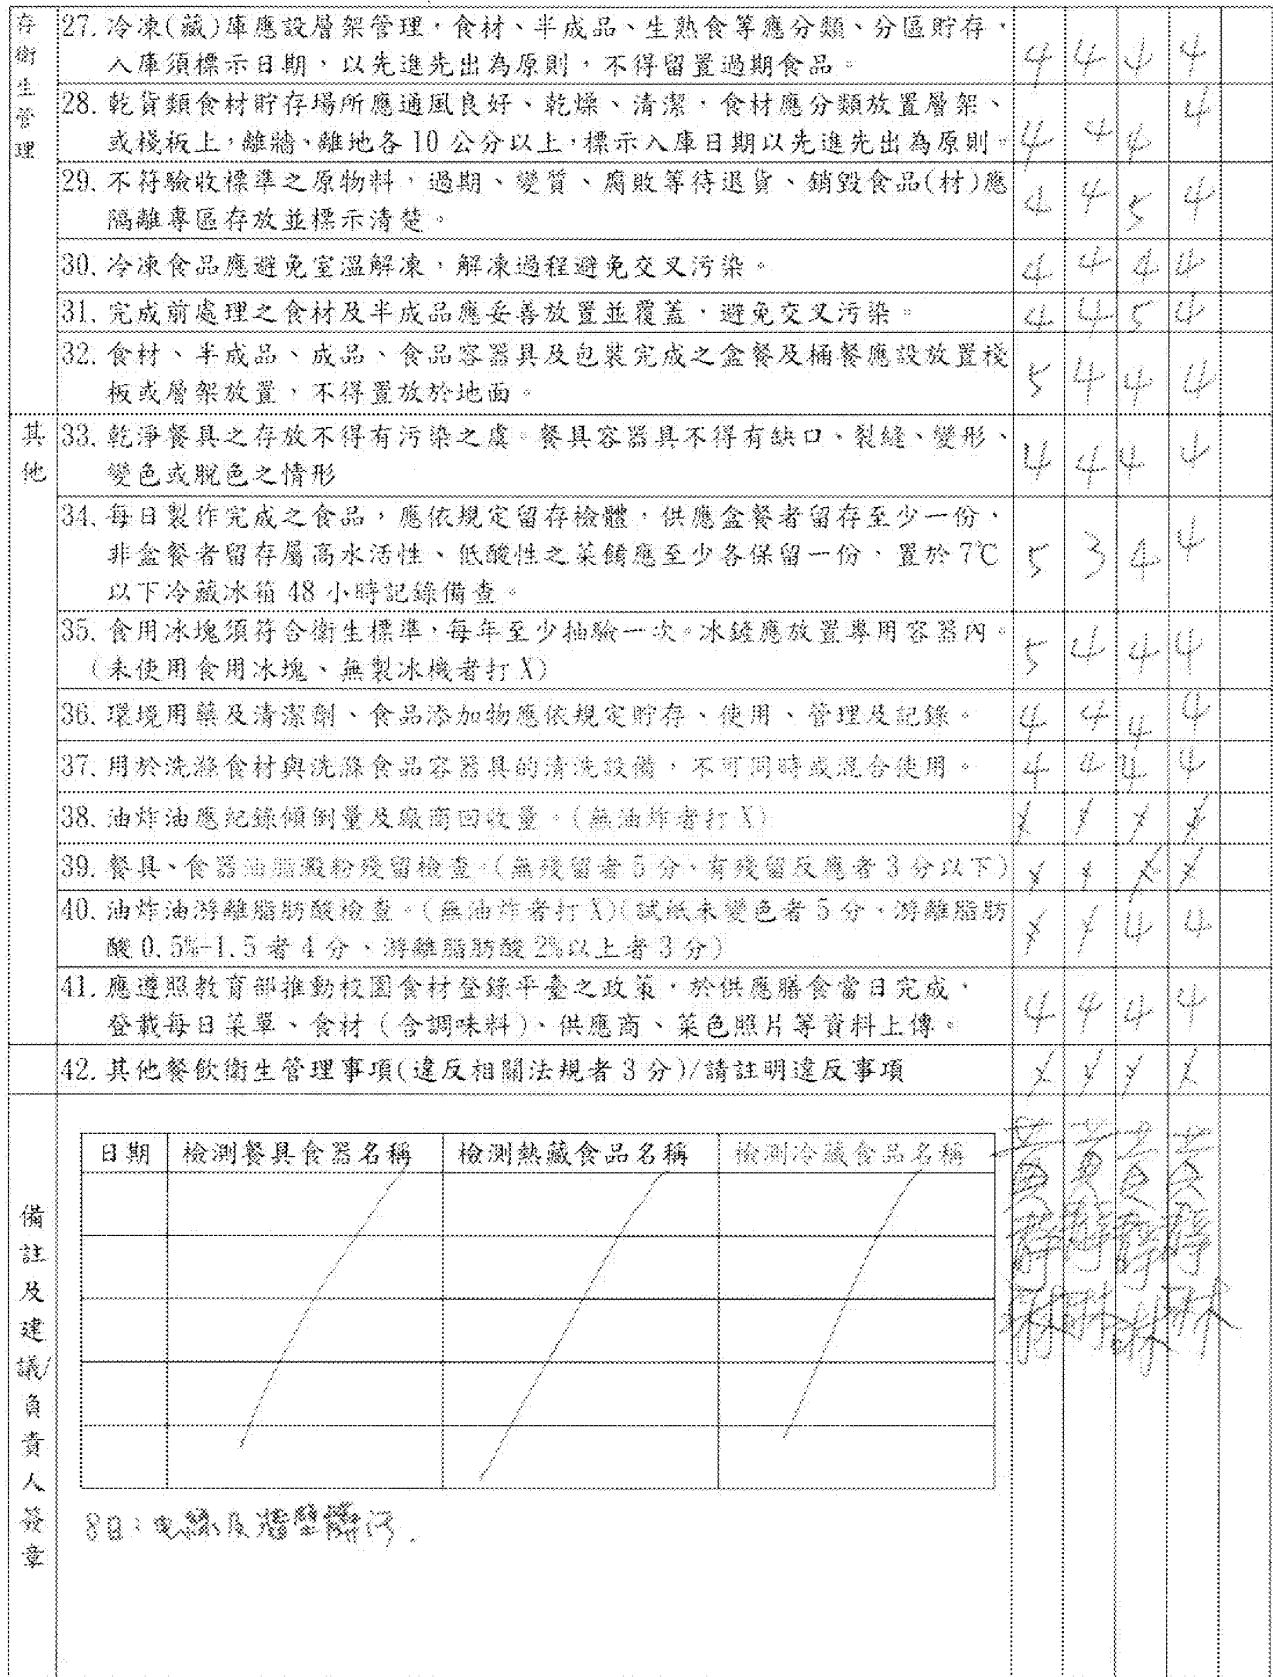 存衛生管理
27. 冷凍(藏)庫應設層架管理，食材、半成品、生熟食等應分類、分區貯存，
入庫須標示日期，以先進先出為原則，不得留置過期食品。 4 4 4 4
28. 乾貨類食材貯存場所應通風良好、乾燥、清潔，食材應分類放置層架、
或棧板上，離牆、離地各 10 公分以上，標示入庫日期以先進先出為原則。 4 4 4 4
29. 不符驗收標準之原物料，過期、變質、腐敗等待退貨、銷毀食品(材)應
隔離專區存放並標示清楚。 4 4 5 4
30. 冷凍食品應避免室溫解凍，解凍過程避免交叉污染。 4 4 4 4
31. 完成前處理之食材及半成品應妥善放置並覆蓋，避免交叉污染。 4 4 5 4
32. 食材、半成品、成品、食品容器具及包裝完成之盒餐及桶餐應設放置棧
板或層架放置，不得置放於地面。 5 4 4 4
其他
33. 乾淨餐具之存放不得有污染之虞。餐具容器具不得有缺口、裂縫、變形、
變色或脫色之情形 4 4 4 4
34. 每日製作完成之食品，應依規定留存檢體，供應盒餐者留存至少一份，
非盒餐者留存屬高水活性、低酸性之菜餚應至少各保留一份，置於 7℃
以下冷藏冰箱 48 小時記錄備查。 5 3 4 4
35. 食用冰塊須符合衛生標準，每年至少抽驗一次。冰鏟應放置專用容器內。
(未使用食用冰塊、無製冰機者打 X) 5 4 4 4
36. 環境用藥及清潔劑、食品添加物應依規定貯存、使用、管理及記錄。 4 4 4 4
37. 用於洗滌食材與洗滌食品容器具的清洗設備，不可同時或混合使用。 4 4 4 4
38. 油炸油應紀錄傾倒量及廠商回收量。(無油炸者打 X) X X X X
39. 餐具、食器油脂澱粉殘留檢查。(無殘留者 5 分、有殘留反應者 3 分以下) X X X X
40. 油炸油游離脂肪酸檢查。(無油炸者打 X)(試紙未變色者 5 分、游離脂肪
酸 0.5%-1.5 者 4 分、游離脂肪酸 2%以上者 3 分) X X 4 4
41. 應遵照教育部推動校園食材登錄平臺之政策，於供應膳食當日完成，
登載每日菜單、食材（含調味料）、供應商、菜色照片等資料上傳。 4 4 4 4
42. 其他餐飲衛生管理事項(違反相關法規者 3 分)/請註明違反事項 X X X X
備註及建議/負責人簽章
日期 檢測餐具食器名稱 檢測熱藏食品名稱 檢測冷藏食品名稱
8日：電線及牆壁髒污.